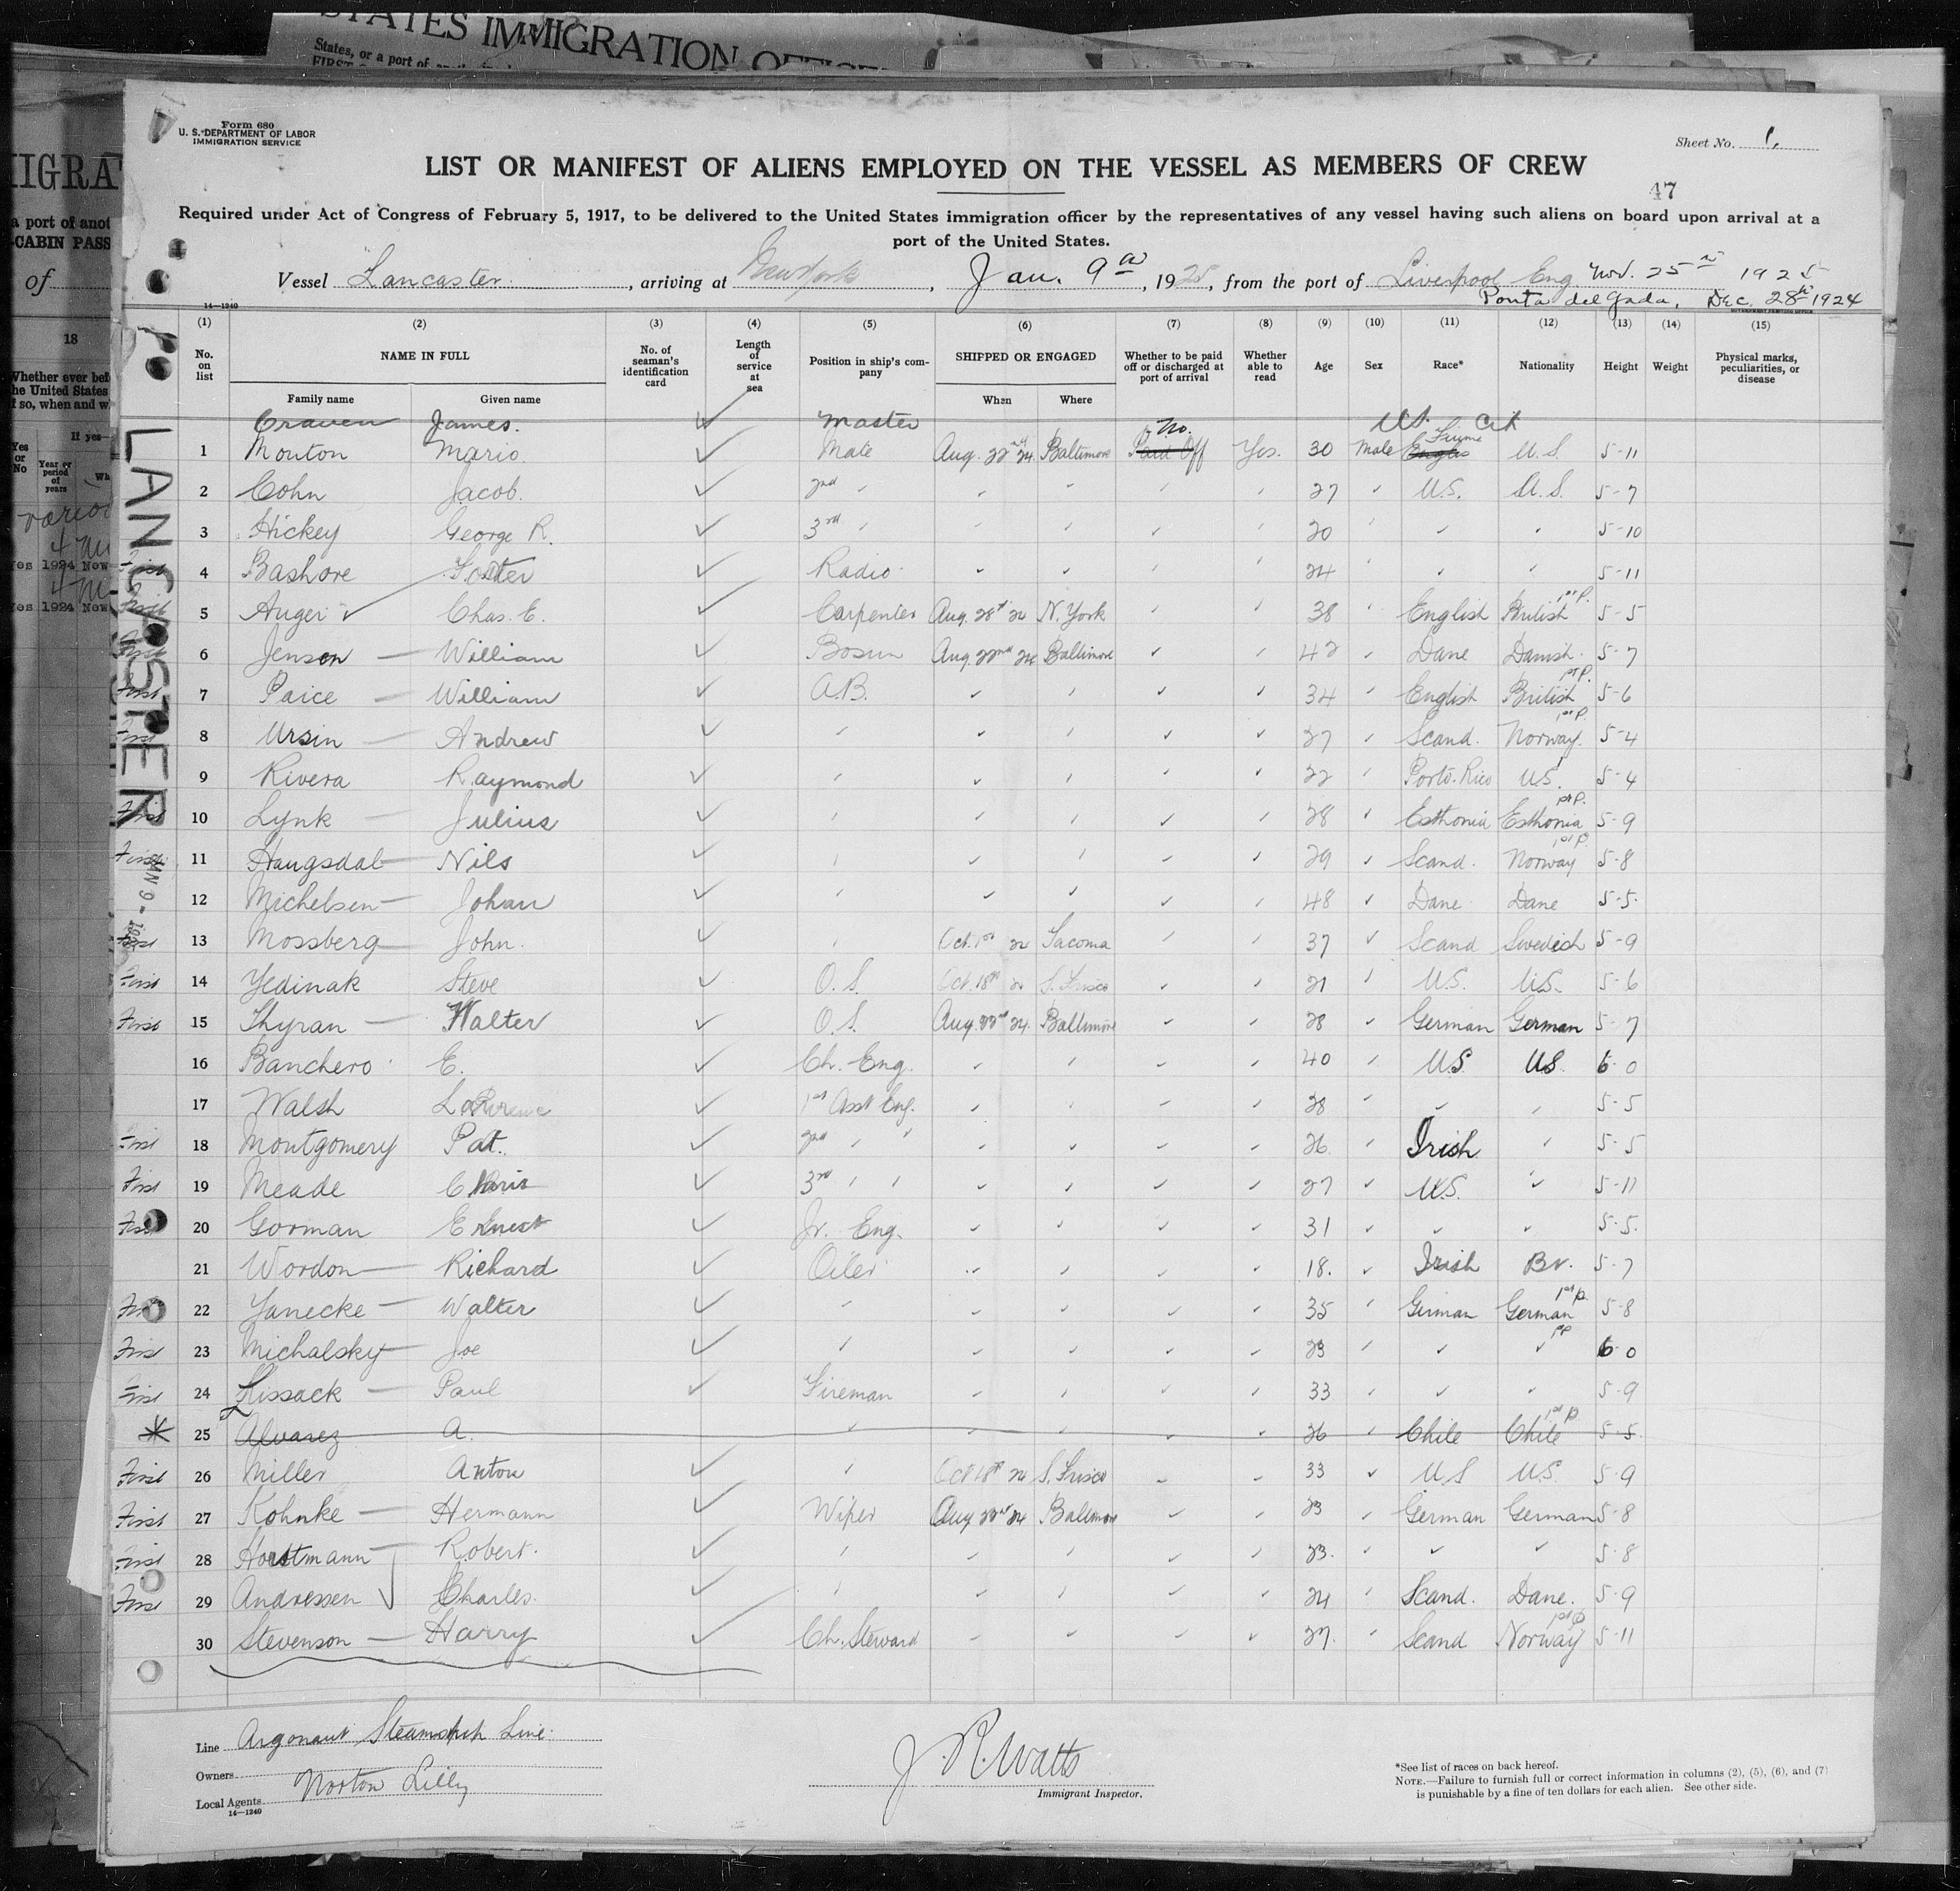 STATES IMMIGRATION OFFICE
States, or a port of
IIGRA
a port of anot
-CABIN PASS
of
18
Whether ever bef
the United States
if so, when and w
Yes or No
If yes—
Year or period of years
Yes 1924 New
Yes 1924 New
Form 680
U. S. DEPARTMENT OF LABOR
IMMIGRATION SERVICE
Sheet No. 1.
LIST OR MANIFEST OF ALIENS EMPLOYED ON THE VESSEL AS MEMBERS OF CREW
47
Required under Act of Congress of February 5, 1917, to be delivered to the United States immigration officer by the representatives of any vessel having such aliens on board upon arrival at a
port of the United States.
Vessel Lancaster, arriving at New York, Jan. 9th, 1925, from the port of Liverpool Eng. Nov. 25th 1925
Ponta del Gada, Dec. 28th 1924
14—1240
LANCASTER
JAN 9 - 1925
(1) (2) (3) (4) (5) (6) (7) (8) (9) (10) (11) (12) (13) (14) (15)
No. on list NAME IN FULL No. of seaman's identification card Length of service at sea Position in ship's company SHIPPED OR ENGAGED Whether to be paid off or discharged at port of arrival Whether able to read Age Sex Race* Nationality Height Weight Physical marks, peculiarities, or disease
Family name Given name When Where
Craven James. Master U.S. Cit
1 Mouton Mario Mate Aug. 22nd 24 Baltimore No. Paid Off Yes. 30 Male Fiume U.S. 5-11
2 Cohn Jacob. 2nd 27 U.S. U.S. 5-7
3 Hickey George R. 3rd 20 5-10
4 Bashore Foster Radio 24 5-11
5 Auger Chas. E. Carpenter Aug. 28th N. York 38 English British 1st P. 5-5
First 6 Jensen William Bosun Aug. 22nd 24 Baltimore 42 Dane Danish 5-7
First 7 Paice William A.B. 34 English British 1st P. 5-6
First 8 Ursin Andrew 27 Scand. Norway 1st P. 5-4
9 Rivera Raymond 22 Porto-Rico U.S. 5-4
First 10 Lynk Julius 28 Esthonia Esthonia 1st P. 5-9
First 11 Haugsdal Nils 29 Scand. Norway 1st P. 5-8
12 Michelsen Johan 48 Dane Dane 5-5
First 13 Mossberg John. Oct. 1st Tacoma 37 Scand Swedish 5-9
First 14 Yedinak Steve O.S. Oct. 18th S. Frisco 21 U.S. U.S. 5-6
First 15 Thyran Walter O.S. Aug. 22nd 24. Baltimore 28 German German 5-7
16 Banchero E. Ch. Eng. 40 U.S. U.S. 6-0
17 Walsh 1st Asst Eng. 28 5-5
First 18 Montgomery Pat. 2nd 26 Irish 5-5
First 19 Meade Chris 3rd 27 U.S. 5-11
First 20 Gorman Ernest Jr. Eng. 31 5-5
21 Wordon Richard Oiler 18. Irish Br. 5-7
First 22 Janecke Walter 35 German German 1st P. 5-8
First 23 Michalsky Joe 23 1st P 6-0
First 24 Kissack Paul Fireman 33 5-9
* 25 Alvarez A. 26 Chile Chile 1st P 5-5
First 26 Miller Anton Oct 18th 24 S. Frisco 33 U.S U.S. 5-9
First 27 Kohnke Hermann Wiper Aug 22nd 24 Baltimore 23 German German 5-8
First 28 Horstmann Robert. 23. 5-8
First 29 Andressen Charles. 24 Scand. Dane. 5-9
30 Stevenson Harry Ch. Steward 27. Scand Norway 1st P 5-11
Line Argonaut Steamship Line
Owners
Local Agents Norton Lilly
14—1240
J. R. Watts
Immigrant Inspector.
*See list of races on back hereof.
NOTE.—Failure to furnish full or correct information in columns (2), (5), (6), and (7)
is punishable by a fine of ten dollars for each alien. See other side.